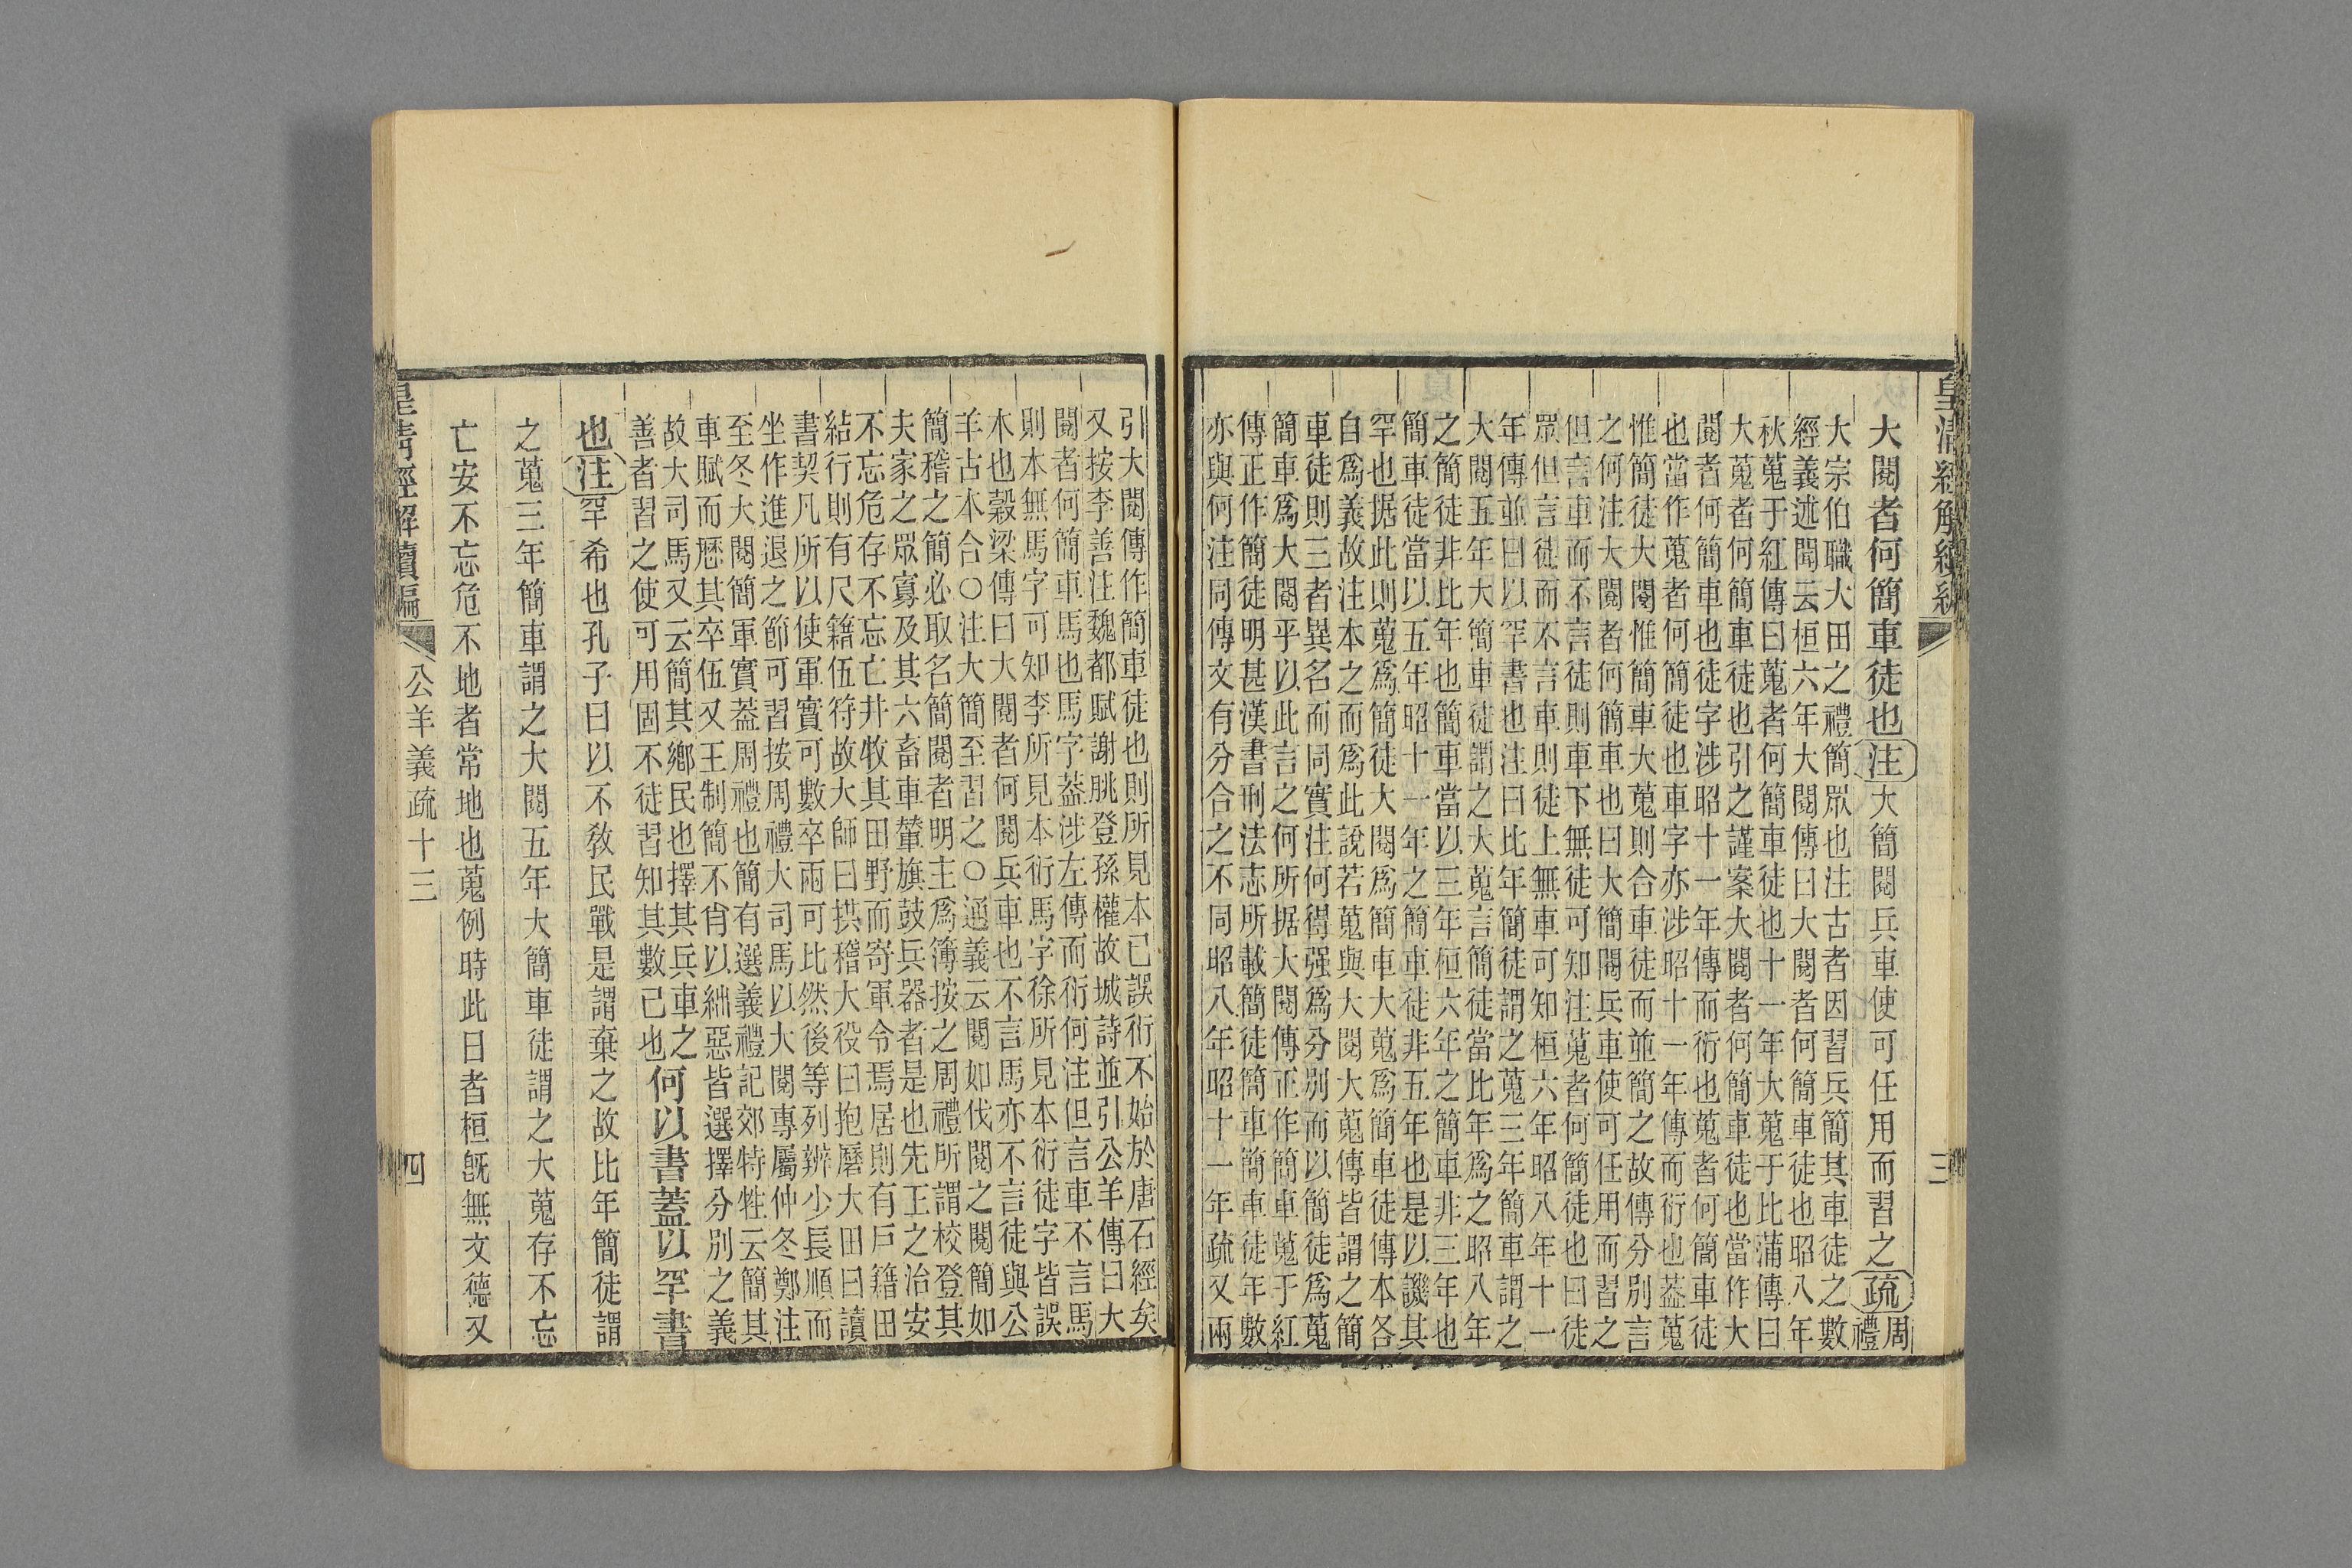 皇清經解續編
三
大閱者何簡車徒也注大簡閱兵車使可任用而習之疏周禮
大宗伯職大田之禮簡眾也注古者因習兵簡其車徒之數
經義述聞云桓六年大閱傳曰大閱者何簡車徒也昭八年
秋蒐于紅傳曰蒐者何簡車徒也十一年大蒐于比蒲傳曰
大蒐者何簡車徒也引之謹案大閱者何簡車徒也當作大
閱者何簡車也徒字涉昭十一年傳而衍也蒐者何簡車徒
也當作蒐者何簡徒也車字亦涉昭十一年傳而衍也蓋蒐
惟簡徒大閱惟簡車大蒐則合車徒而並簡之故傳分別言
之何注大閱者何簡車也曰大簡閱兵車使可任用而習之
但言車而不言徒則車下無徒可知注蒐者何簡徒也曰徒
眾但言徒而不言車則徒上無車可知桓六年昭八年十一
年傳並曰以罕書也注曰比年簡徒謂之蒐三年簡車謂之
大閱五年大簡車徒謂之大蒐言簡徒當比年為之昭八年
之簡徒非比年也簡車當以三年桓六年之簡車非三年也
簡車徒當以五年昭十一年之簡車徒非五年也是以譏其
罕也据此則蒐為簡徒大閱為簡車大蒐為簡車徒傳本各
自為義故注本之而為此說若蒐與大閱大蒐傳皆謂之簡
車徒則三者異名而同實注何得强為分別而以簡徒為蒐
簡車為大閱乎以此言之何所据大閱傳正作簡車蒐于紅
傳正作簡徒明甚漢書刑法志所載簡徒簡車簡車徒年數
亦與何注同傳文有分合之不同昭八年昭十一年疏又兩
引大閱傳作簡車徒也則所見本已誤衍不始於唐石經矣
又按李善注魏都賦謝脁登孫權故城詩並引公羊傳曰大
閱者何簡車馬也馬字蓋涉左傳而衍何注但言車不言馬
則本無馬字可知李所見本衍馬字徐所見本衍徒字皆誤
木也穀梁傳曰大閱者何閱兵車也不言馬亦不言徒與公
羊古本合○注大簡至習之○通義云閱如伐閱之閱簡如
簡稽之簡必取名簡閱者明主為簿按之周禮所謂校登其
夫家之眾寡及其六畜車輦旗鼓兵器者是也先王之治安
不忘危存不忘亡井牧其田野而寄軍令焉居則有戶籍田
結行則有尺籍伍符故大師曰拱稽大役曰抱磿大田曰讀
書契凡所以使軍實可數卒兩可比然後等列辨少長順而
坐作進退之節可習按周禮大司馬以大閱專屬仲冬鄭注
至冬大閱簡軍實蓋周禮也簡有選義禮記郊特牲云簡其
車賦而厯其卒伍又王制簡不肖以絀惡皆選擇分別之義
故大司馬又云簡其鄉民也擇其兵車之
善者習之使可用固不徒習知其數已也何以書蓋以罕書
也注罕希也孔子曰以不敎民戰是謂棄之故比年簡徒謂
之蒐三年簡車謂之大閱五年大簡車徒謂之大蒐存不忘
亡安不忘危不地者常地也蒐例時此日者桓旣無文德又
皇清經解續編
公羊義疏十三
四